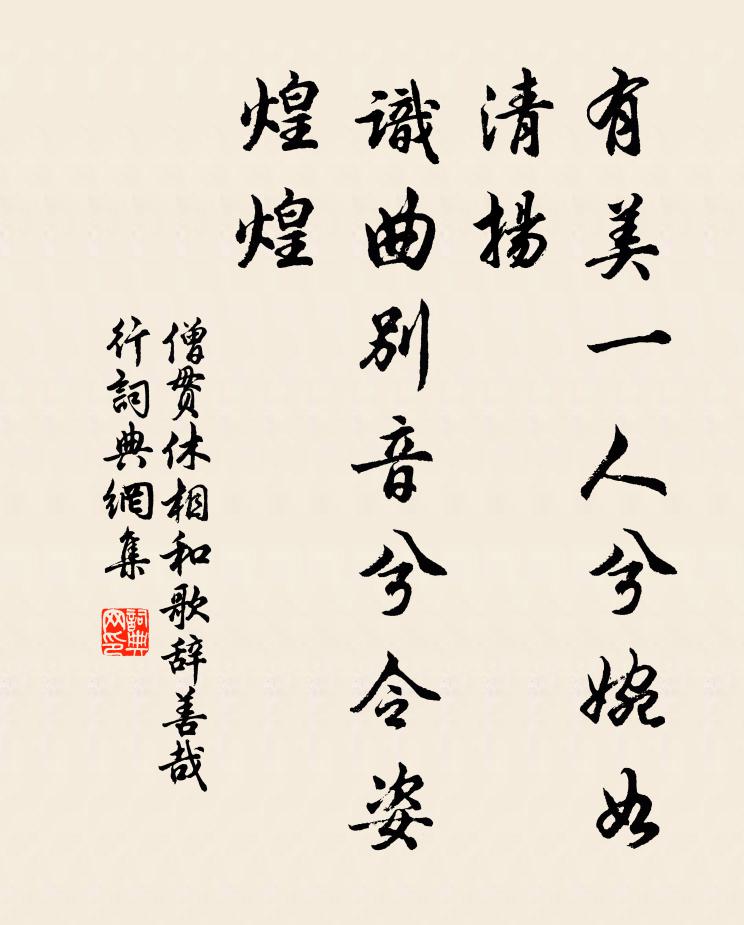 有美一人兮婉如
清揚
識曲別音兮令姿
煌煌
僧貫休相和歌辞善哉
行詞典網集
詞典
网印